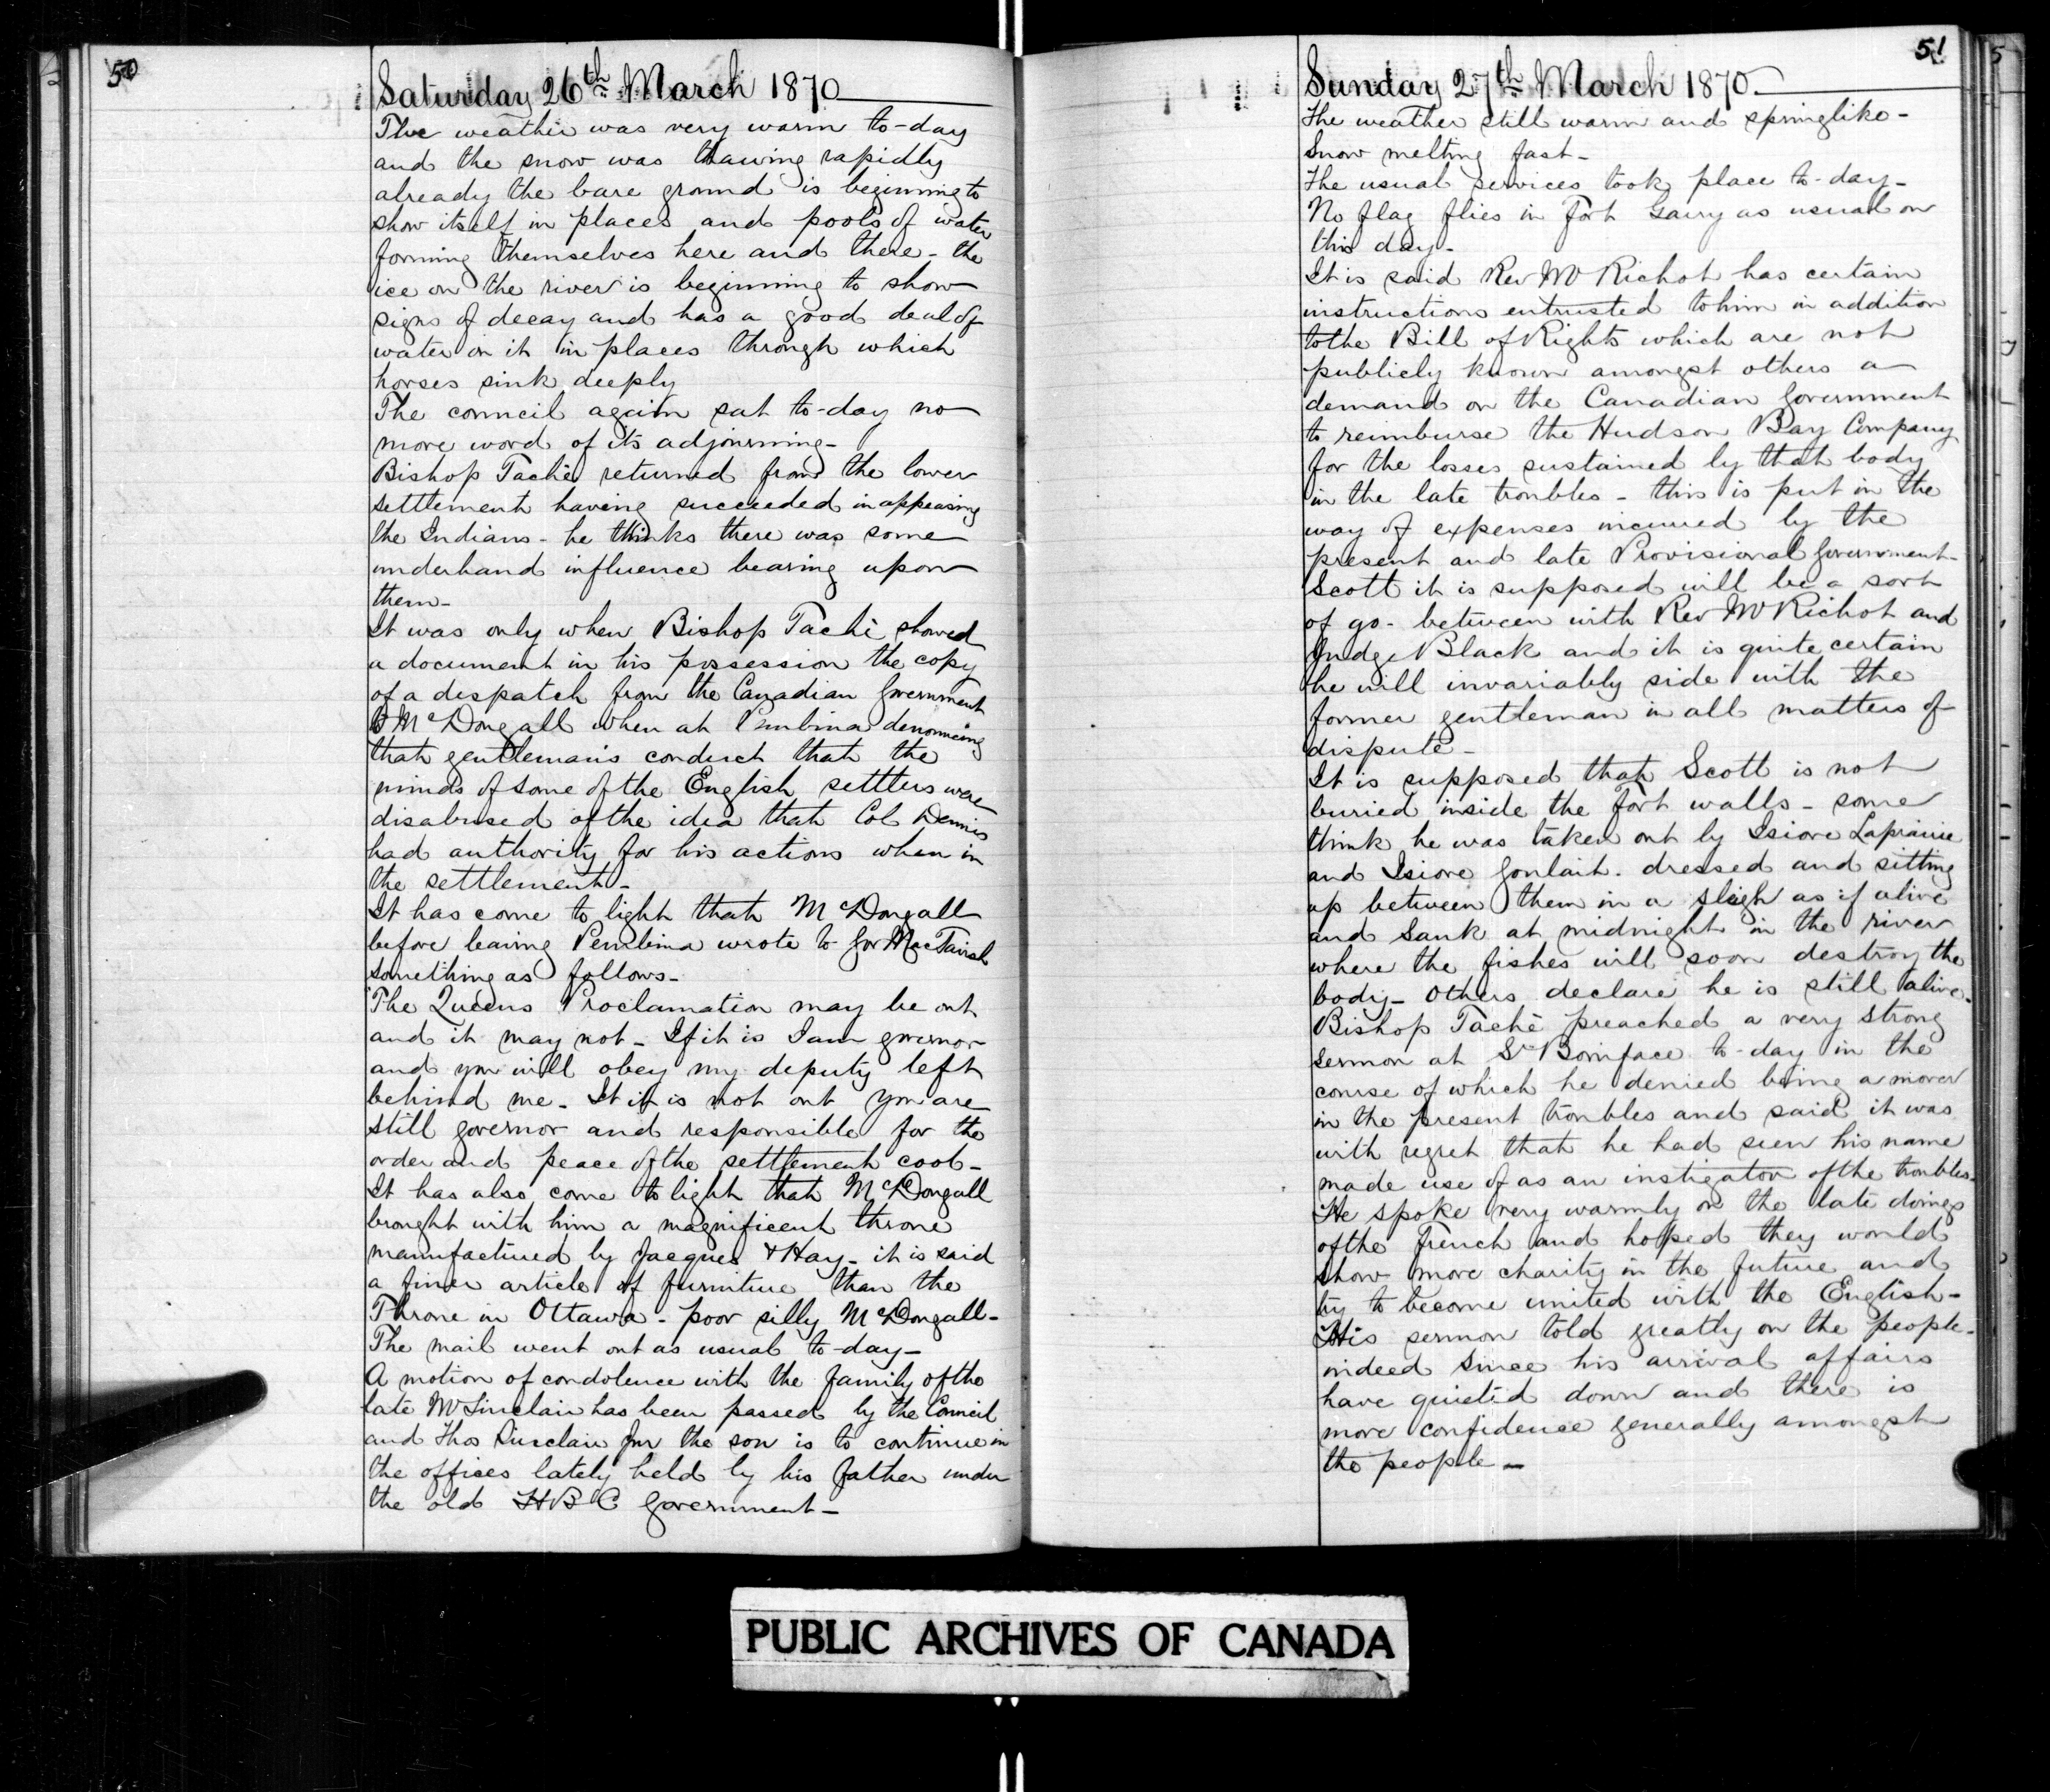 50
Saturday 26th March 1870
The weather was very warm to-day
and the snow was thawing rapidly
already the bare ground is beginning to
show itself in places and pools of water
forming themselves here and there - the
ice on the river is beginning to show
signs of decay and has a good deal of
water on it in places through which
horses sink deeply
The council again sat to-day no
more word of its adjourning -
Bishop Taché returned from the lower
settlement having succeeded in appeasing
the Indians - he thinks there was some
underhand influence bearing upon
them -
It was only when Bishop Taché showed
a document in his possession the copy
of a despatch from the Canadian Government
to McDougall when at Pembina denouncing
that gentleman's conduct that the
minds of some of the English settlers were
disabused of the idea that Col Dennis
had authority for his actions when in
the settlement -
It has come to light that McDougall
before leaving Pembina wrote to Gov MacTavish
something as follows -
"The Queens Proclamation may be out
and it may not - If it is I am governor
and you will obey my deputy left
behind me - It if is not out you are
still governor and responsible for the
order and peace of the settlement cool -
It has also come to light that McDougall
brought with him a magnificent throne
manufactured by Jacques & Hay - it is said
a finer article of furniture than the
Throne in Ottawa - poor silly McDougall -
The mail went out as usual to-day -
A motion of condolence with the family of the
late Mr Sinclair has been passed by the Council
and Thos Sinclair Jnr the son is to continue in
the offices lately held by his father under
the old H B C Government -
51
Sunday 27th March 1870
The weather still warm and springlike -
Snow melting fast -
The usual services took place to-day -
No flag flies in Fort Garry as usual on
this day -
It is said Rev Mr Richot has certain
instructions entrusted to him in addition
to the Bill of Rights which are not
publicly known amongst others a
demand on the Canadian Government
to reimburse the Hudson Bay Company
for the losses sustained by that body
in the late troubles - this is put in the
way of expenses incurred by the
present and late Provisional Government -
Scott it is supposed will be a sort
of go-between with Rev Mr Richot and
Judge Black and it is quite certain
he will invariably side with the
former gentleman in all matters of
dispute -
It is supposed that Scott is not
buried inside the Fort walls - some
think he was taken out by Isiore Laprairie
and Isiore Goulait. dressed and sitting
up between them in a sleigh as if alive
and sank at midnight in the river
where the fishes will soon destroy the
body - Others declare he is still alive -
Bishop Taché preached a very strong
sermon at St Boniface to-day in the
course of which he denied being a mover
in the present troubles and said it was
with regret that he had seen his name
made use of as an instigator of the troubles -
He spoke very warmly on the late doings
of the French and hoped they would
show more charity in the future and
try to become united with the English -
His sermon told greatly on the people -
indeed since his arrival affairs
have quieted down and there is
more confidence generally amongst
the people -
PUBLIC ARCHIVES OF CANADA